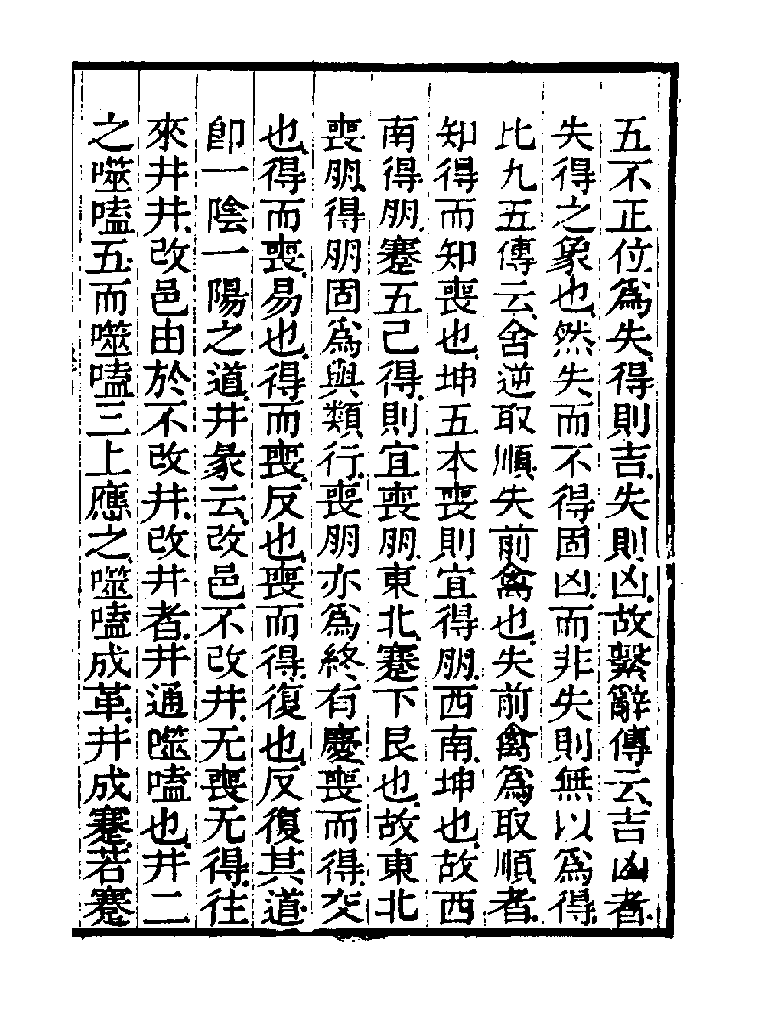 五不正位爲失得則吉失則凶故繫辭傳云吉凶者
失得之象也然失而不得固凶而非失則無以爲得
比九五傳云舍逆取順失前禽也失前禽爲取順者
知得而知喪也坤五本喪則宜得朋西南坤也故西
南得朋蹇五己得則宜喪朋東北蹇下艮也故東北
喪朋得朋固爲與類行喪朋亦爲終有慶喪而得交
也得而喪易也得而喪反也喪而得復也反復其道
卽一陰一陽之道井彖云改邑不改井无喪无得往
來井井改邑由於不改井改井者井通噬嗑也井二
之噬嗑五而噬嗑三上應之噬嗑成革井成蹇若蹇